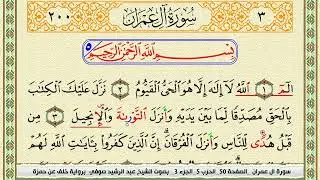 ٢٠٠ سورة آل عمران ٣
بِسْمِ اللَّهِ الرَّحْمَٰنِ الرَّحِيمِ
الٓمٓ ١ اللَّهُ لَا إِلَٰهَ إِلَّا هُوَ الْحَيُّ الْقَيُّومُ ٢ نَزَّلَ عَلَيْكَ الْكِتَابَ
بِالْحَقِّ مُصَدِّقًا لِّمَا بَيْنَ يَدَيْهِ وَأَنزَلَ التَّوْرَىٰةَ وَالْإِنجِيلَ ٣ مِن
قَبْلُ هُدًى لِّلنَّاسِ وَأَنزَلَ الْفُرْقَانَ إِنَّ الَّذِينَ كَفَرُوا بِـَٔايَاتِ اللَّهِ لَهُمْ
سورة آل عمران . الصفحة 50 الحزب 5 . الجزء 3 . بصوت الشيخ عبد الرشيد صوفي . برواية خلف عن حمزة